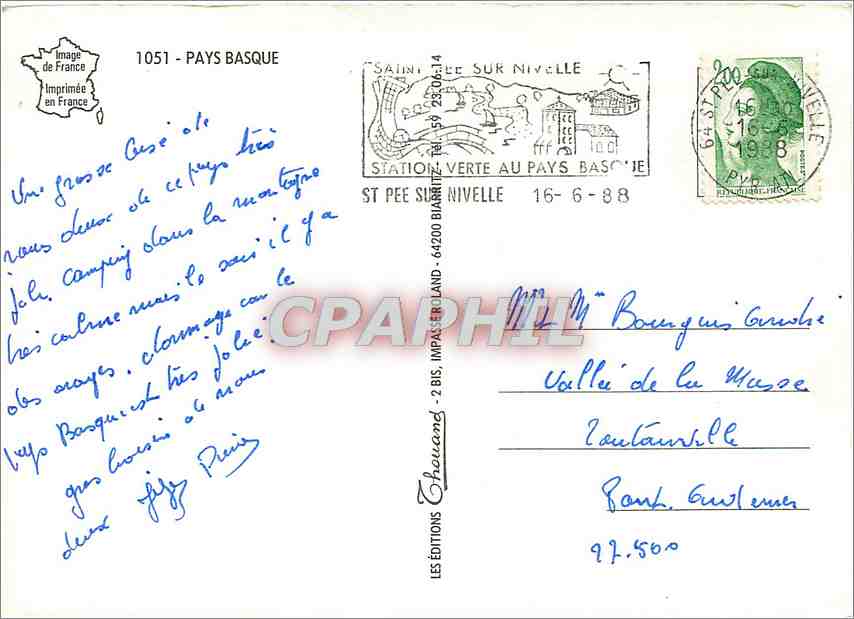 Image
de France
Imprimée
en France
1051 - PAYS BASQUE
SAINT PEE SUR NIVELLE
STATION VERTE AU PAYS BASQUE
ST PEE SUR NIVELLE 16-6-88
64 ST PEE SUR NIVELLE
16H30
16-6
1988
PYR. AT.
2,00
REPUBLIQUE FRANÇAISE
Une grosse bise de
nous deux de ce pays très
joli. camping dans la montagne
très calme mais le soir il y a
des orages. dommage car le
pays Basque est très joli.
gros baisers de nous
deux
CPAPHIL
LES EDITIONS Thouand - 2 BIS, IMPASSE ROLAND - 64200 BIARRITZ - Tél. 59 23.06.14
Mr Mme Bourguis André
Vallée de la Masse
Pont Audemer
27.500